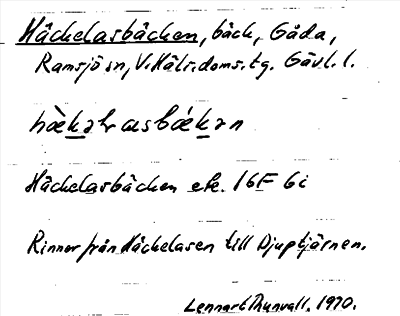 Häckelasbäcken, bäck, Gåda,
Ramsjö sn, V. Häls. doms. tg. Gävl. l.
Häckelasbäcken ek. 16F 6i
Rinner från Häckelasen till Djuptjärnen.
Lennart Thunvall. 1970.